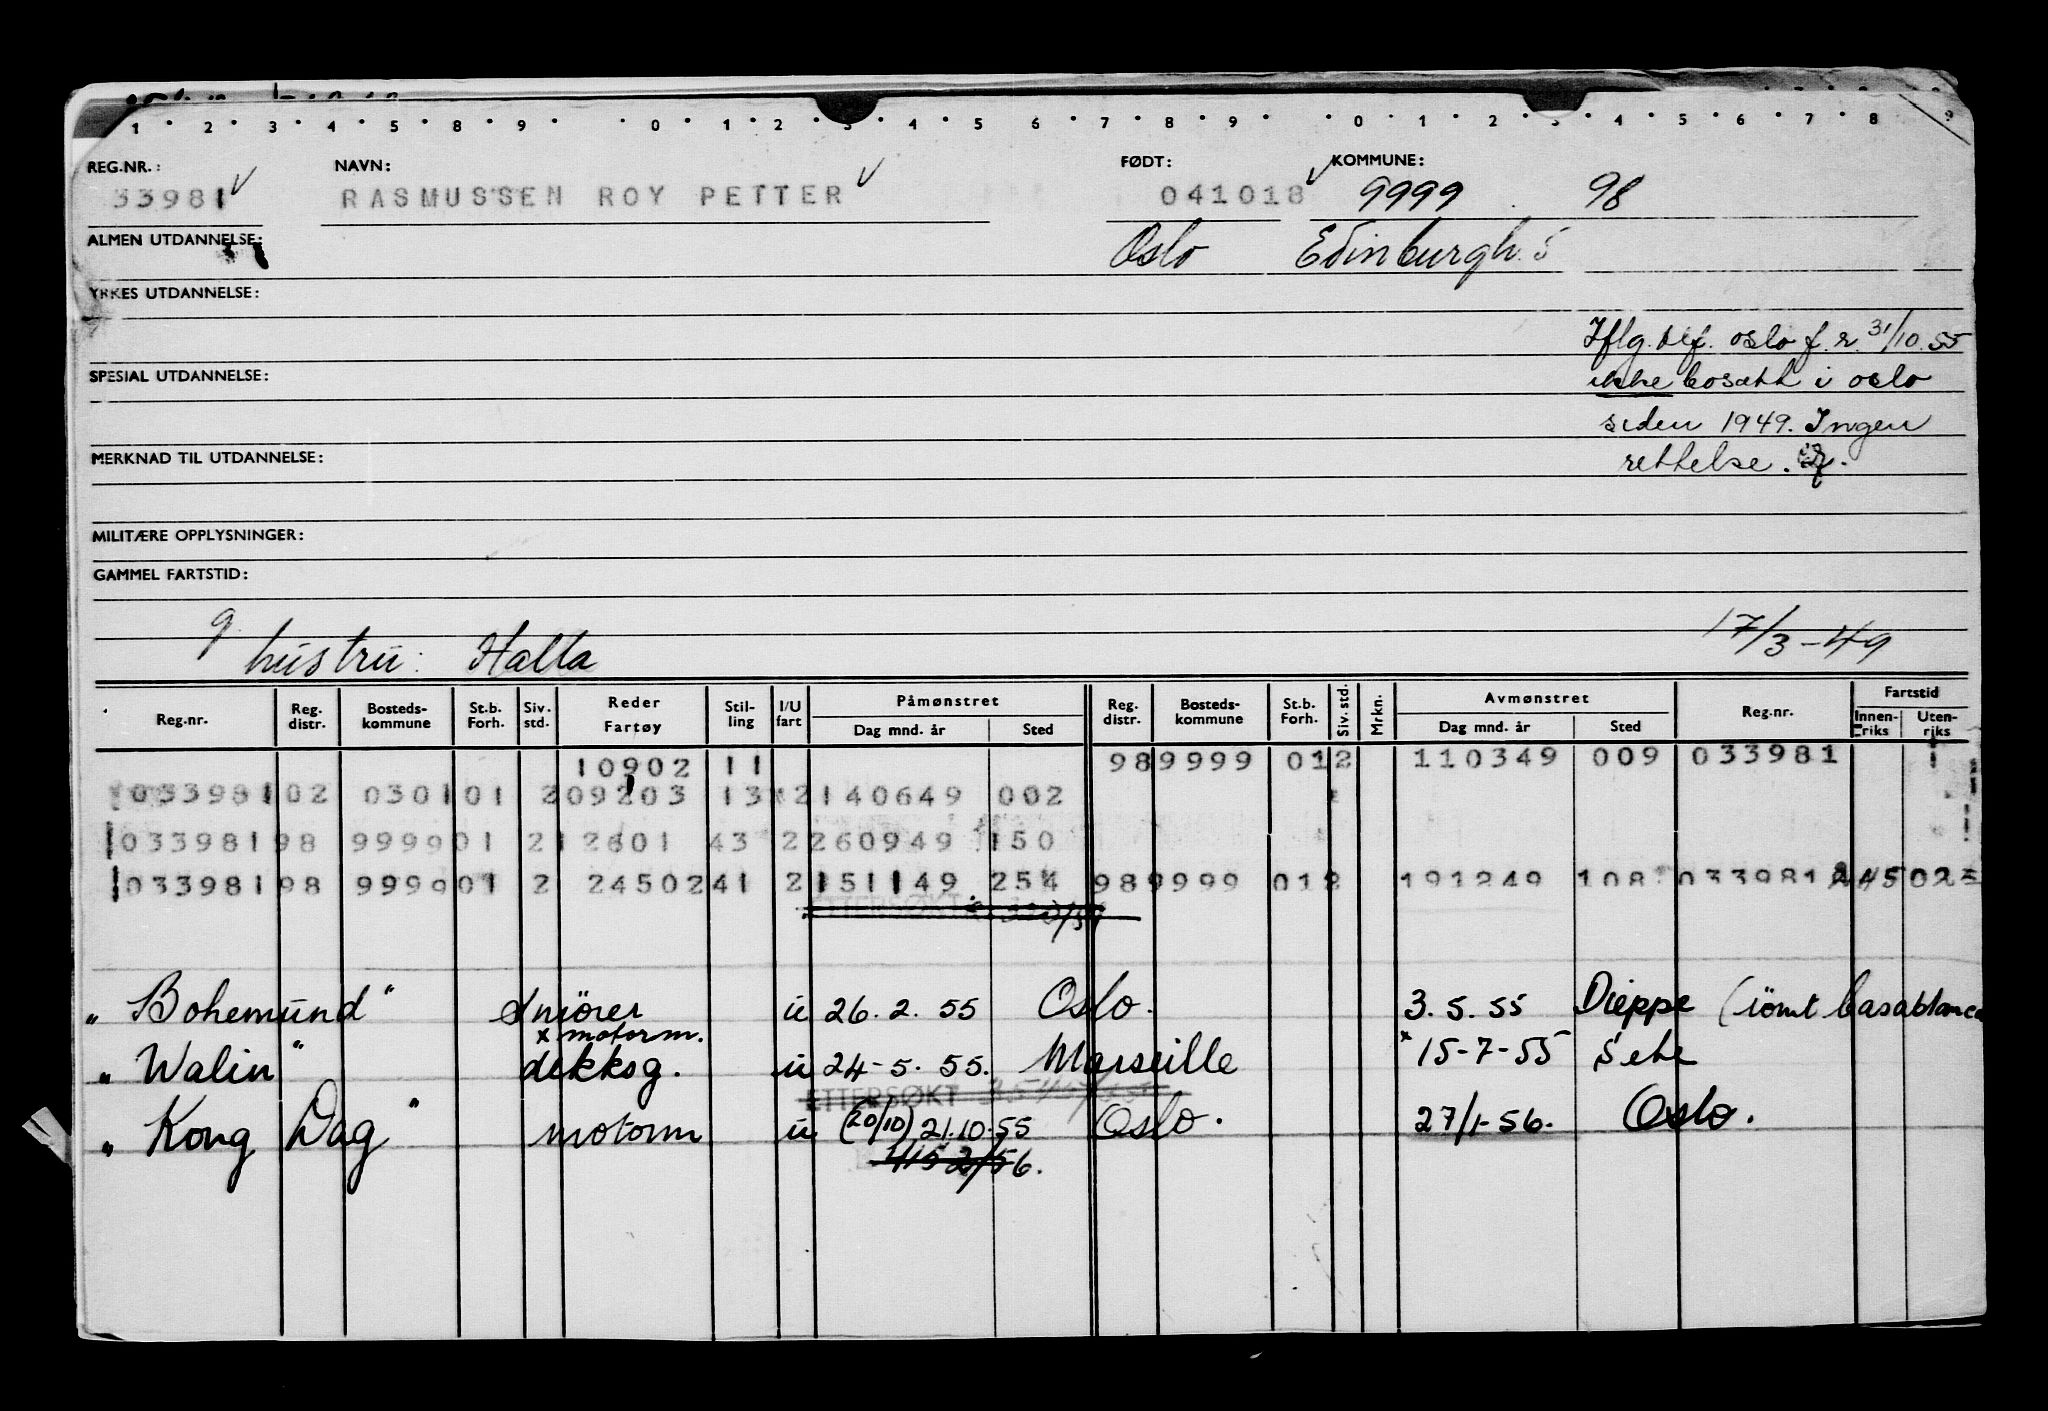 1 2 3 4 5 8 9 0 1 2 3 4 5 6 7 8 9 0 1 2 3 4 5 6 7 8 9
REG.NR.: NAVN: FØDT: KOMMUNE:
33981 RASMUSSEN ROY PETTER 041018 9999 98
ALMEN UTDANNELSE: Oslo Edinburgh. 5
YRKES UTDANNELSE:
Iflg. oslo f.r. 31/10.55
SPESIAL UTDANNELSE: ikke bosatt i oslo
siden 1949. Ingen
MERKNAD TIL UTDANNELSE: rettelse.
MILITÆRE OPPLYSNINGER:
GAMMEL FARTSTID:
g. hustru: 17/3-49
Reg.nr. Reg. distr. Bosteds- kommune St.b. Forh. Siv. std. Reder Fartøy Stil- ling I/U fart Påmønstret Dag mnd. år Sted Reg. distr. Bosteds- kommune St.b. Forh. Siv. std. Mrkn. Avmønstret Dag mnd. år Sted Reg.nr. Fartstid Innen- riks Uten- riks
10902 11 98 9999 01 2 110349 009 033981
033981 02 0301 01 2 09203 13 2 140649 002
033981 98 9999 01 2 12601 43 2 260949 150
033981 98 9999 01 2 24502 41 2 151149 254 98 9999 01 2 191249 108 033981
ETTERSØKT
"Bohemund" smører u 26. 2. 55 Oslo. 3. 5. 55 Dieppe (rømt Casablanca
x motorm.
"Walin" dekksg. u 24-5. 55. Marseille x 15-7-55 Sete
ETTERSØKT
"Kong Dag" motorm u (20/10) 21.10.55 Oslo. 27/1-56. Oslo.
415 2/56.